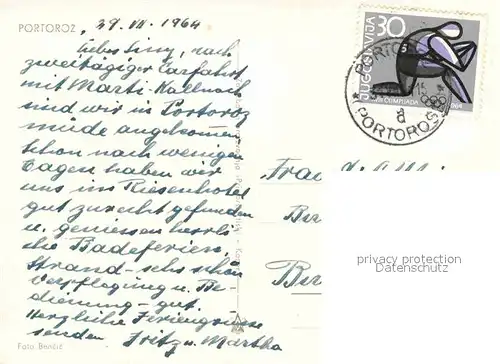 PORTOROŽ
29. VII. 1964
Liebes Gusy, nach
zweitägiger Carfahrt
mit Marti-Kallnach
sind wir in Portoroz
müde angekommen
Schon nach wenigen
Tagen haben wir
uns im Riesenhotel
gut zurecht gefunden
u. geniessen herrli-
che Badeferien.
Strand - sehr schön
Verpflegung u. Be-
dienung - gut.
Herzliche Feriengrüsse
senden Fritz u. Martha
Foto Benčić
JUGOSLAVIJA
30
OLIMPIJADA 1964
PORTOROŽ
a
PORTOROSE
Frau
Ber
Ber
privacy protection
Datenschutz